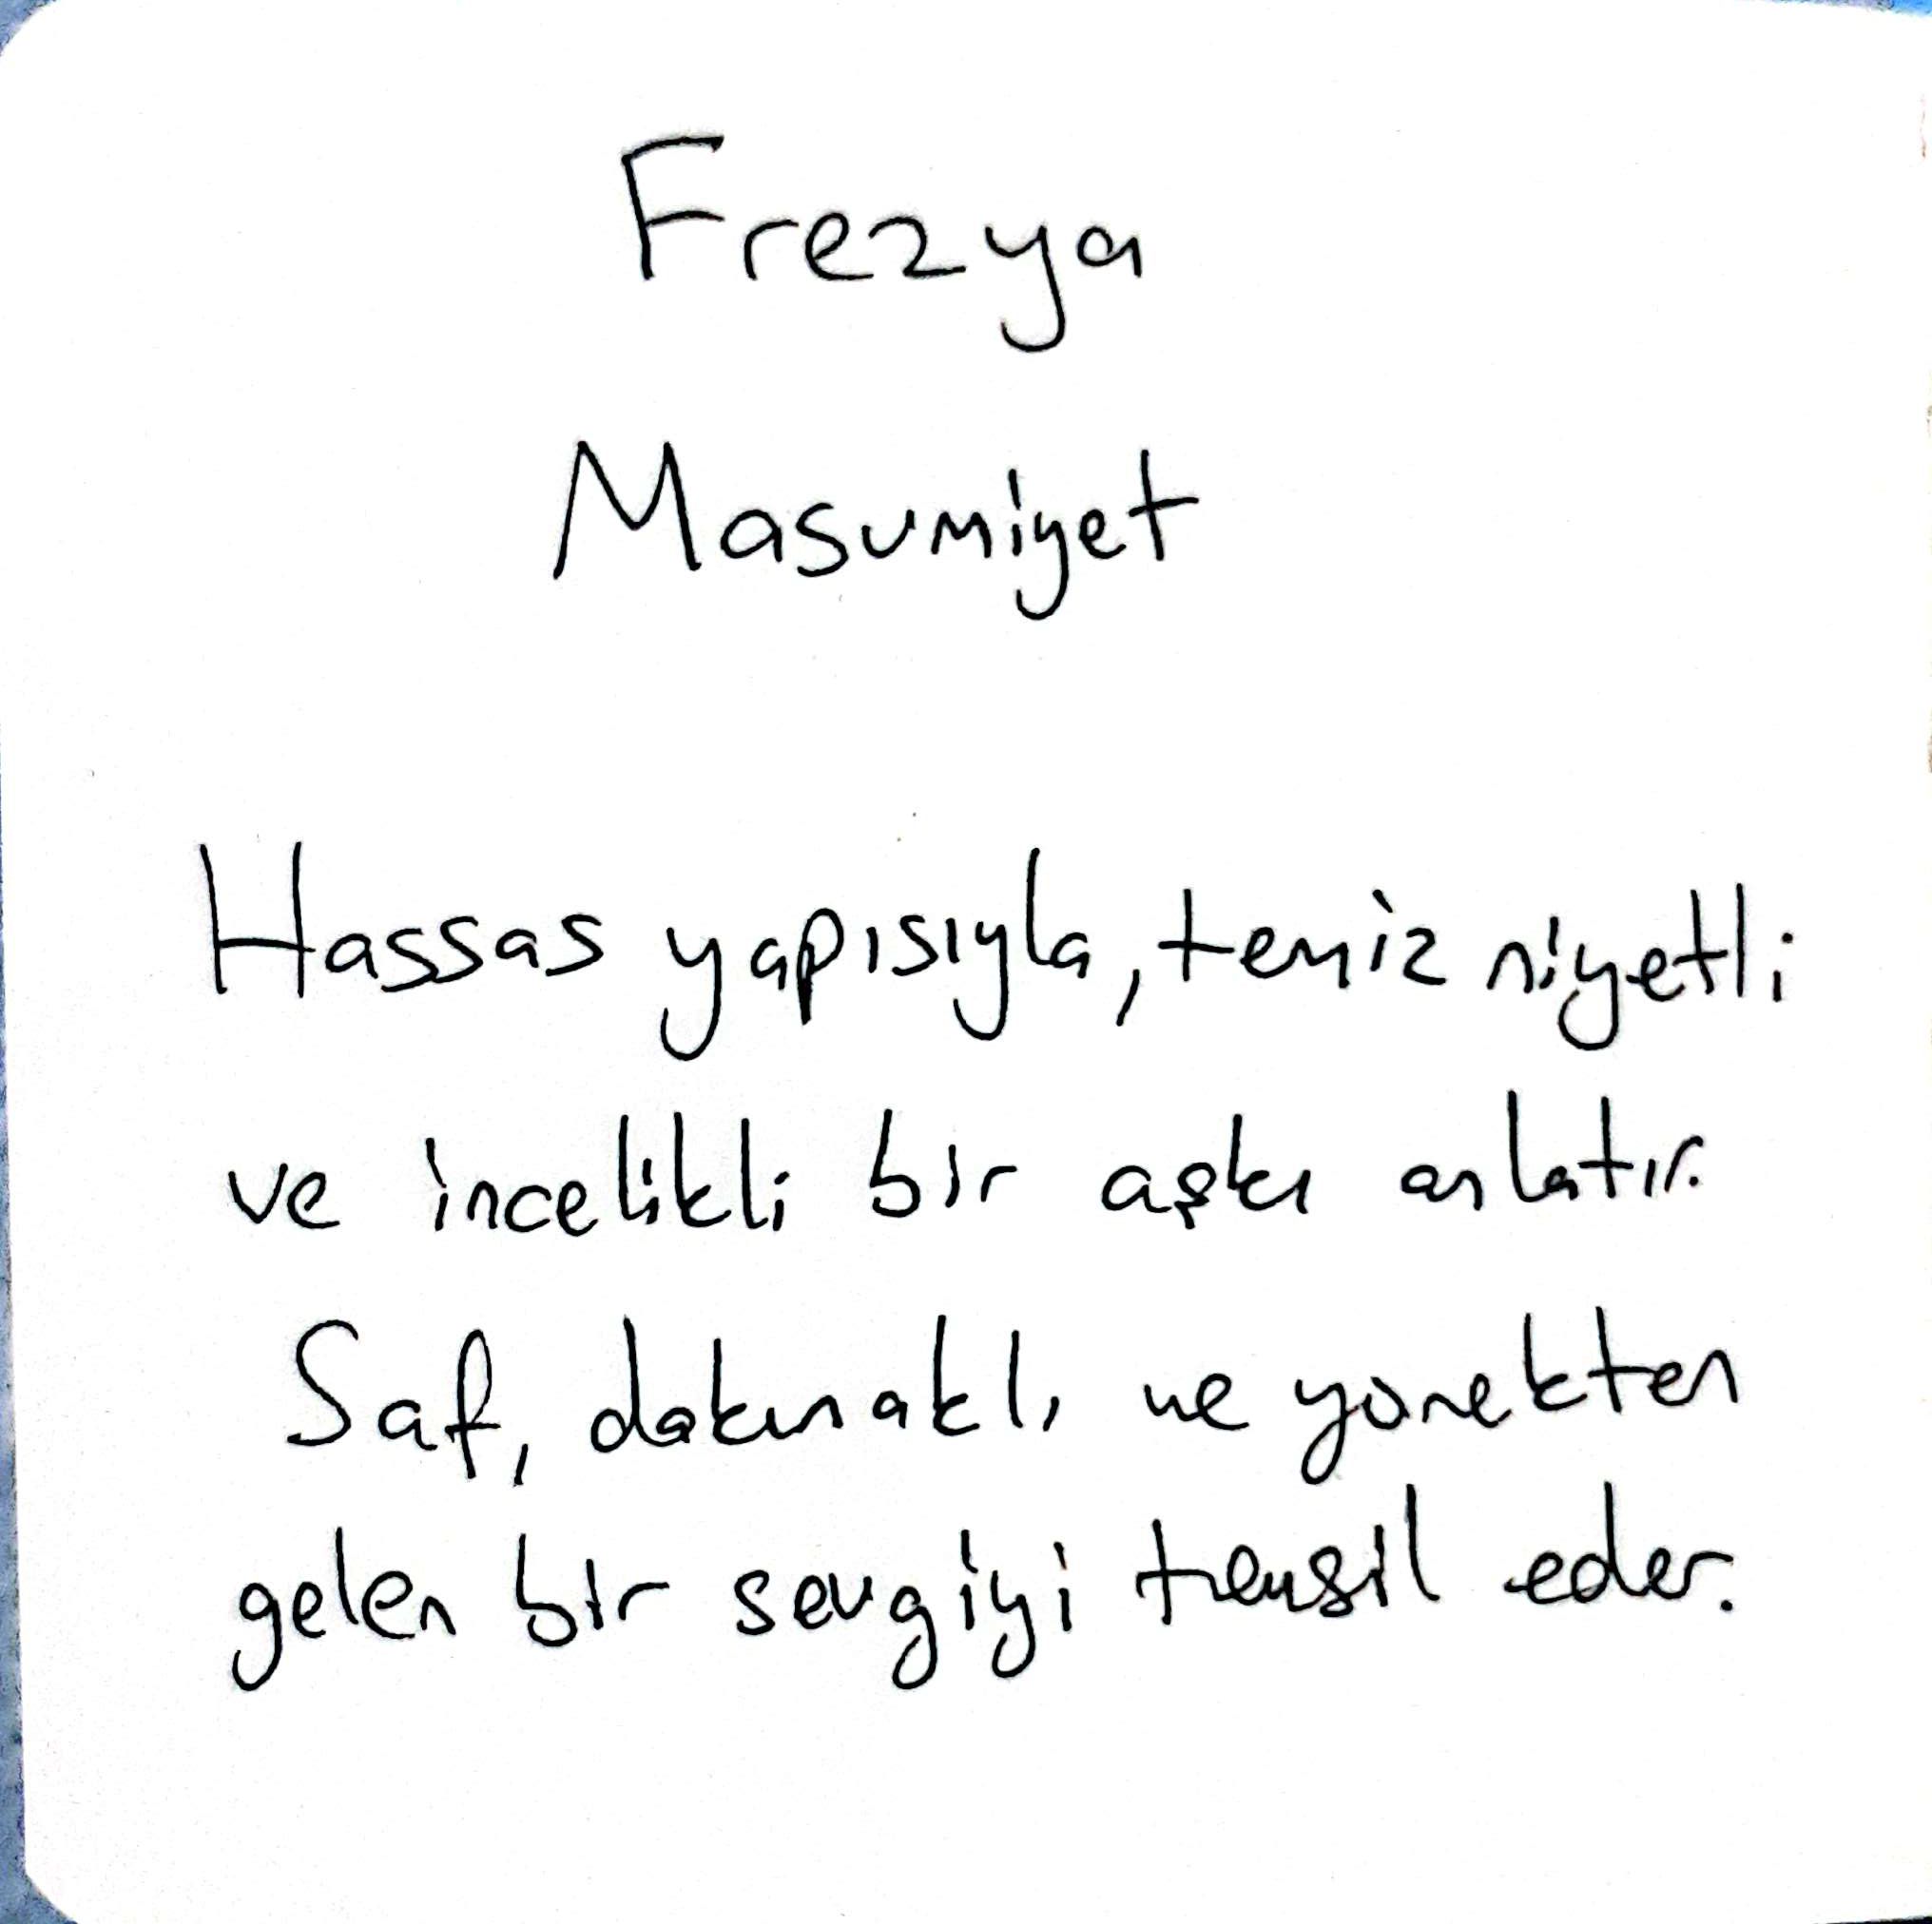 Frezya
Masumiyet
Hassas yapısıyla, temiz niyetli
ve incelikli bir aşkı anlatır.
Saf, dokunaklı ve yürekten
gelen bir sevgiyi temsil eder.